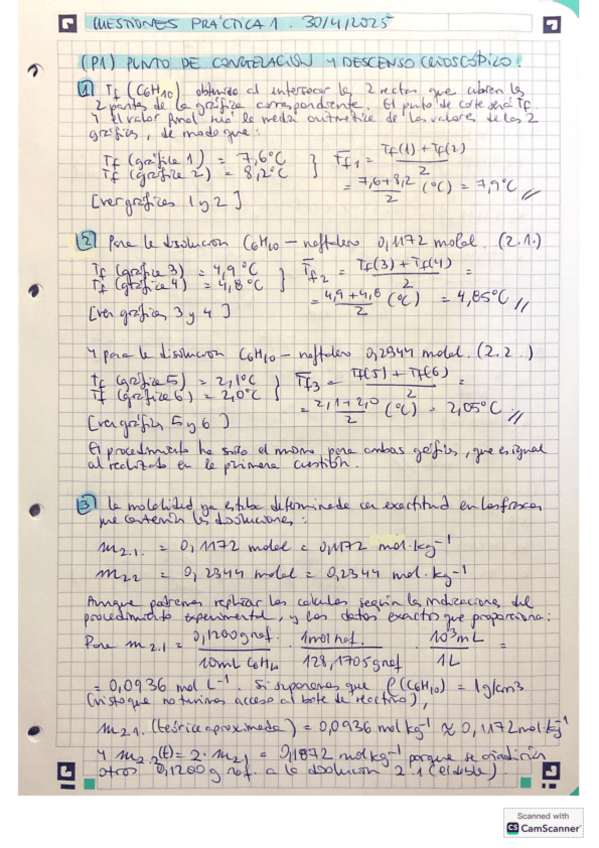 CUESTIONES PRÁCTICA 1. 30/4/2025
(P1) PUNTO DE CONGELACIÓN Y DESCENSO CRIOSCÓPICO:
1 Tf (C6H10) obtenido al intersecar las 2 rectas que cubren las
2 partes de la gráfica correspondiente. El punto de corte será Tf.
Y el valor final será la media aritmética de los valores de las 2
gráficas, de modo que:
Tf (gráfica 1) = 7,6°C
Tf (gráfica 2) = 8,2°C
T̄f1 = Tf(1) + Tf(2) / 2
= 7,6+8,2 / 2 (°C) = 7,9°C //
[ver gráficas 1 y 2]
2 Para la disolución C6H10 – naftaleno 0,1172 molal. (2.1.)
Tf (gráfica 3) = 4,9°C
Tf (gráfica 4) = 4,8°C
T̄f2 = Tf(3) + Tf(4) / 2 =
= 4,9+4,8 / 2 (°C) = 4,85°C //
[ver gráficas 3 y 4]
Y para la disolución C6H10 – naftaleno 0,2344 molal. (2.2.)
Tf (gráfica 5) = 2,1°C
Tf (gráfica 6) = 2,0°C
T̄f3 = Tf(5) + Tf(6) / 2 =
= 2,1+2,0 / 2 (°C) = 2,05°C //
[ver gráficas 5 y 6]
El procedimiento ha sido el mismo para ambas gráficas, que es igual
al realizado en la primera cuestión.
3 La molalidad ya estaba determinada con exactitud en los frascos
que contenían las disoluciones:
m2.1. = 0,1172 molal = 0,1172 mol·kg⁻¹
m2.2 = 0,2344 molal = 0,2344 mol·kg⁻¹
Aunque podremos replicar los cálculos según las indicaciones del
procedimiento experimental, y los datos exactos que proporciona:
Para m2.1 = 0,1200g naf. / 10mL C6H10 · 1mol naf. / 128,1705g naf · 10³mL / 1L =
= 0,0936 mol L⁻¹. Si suponemos que ρ(C6H10) = 1g/cm3
(visto que no tuvimos acceso al bote de reactivo),
m2.1. (teórica aproximada) = 0,0936 mol kg⁻¹ ≈ 0,1172 mol·kg⁻¹
Y m2.2(t) = 2·m2.1 = 0,1872 mol kg⁻¹ porque se añadirían
otros 0,1200g naf. a la disolución 2.1 (el doble).
Scanned with
CS CamScanner